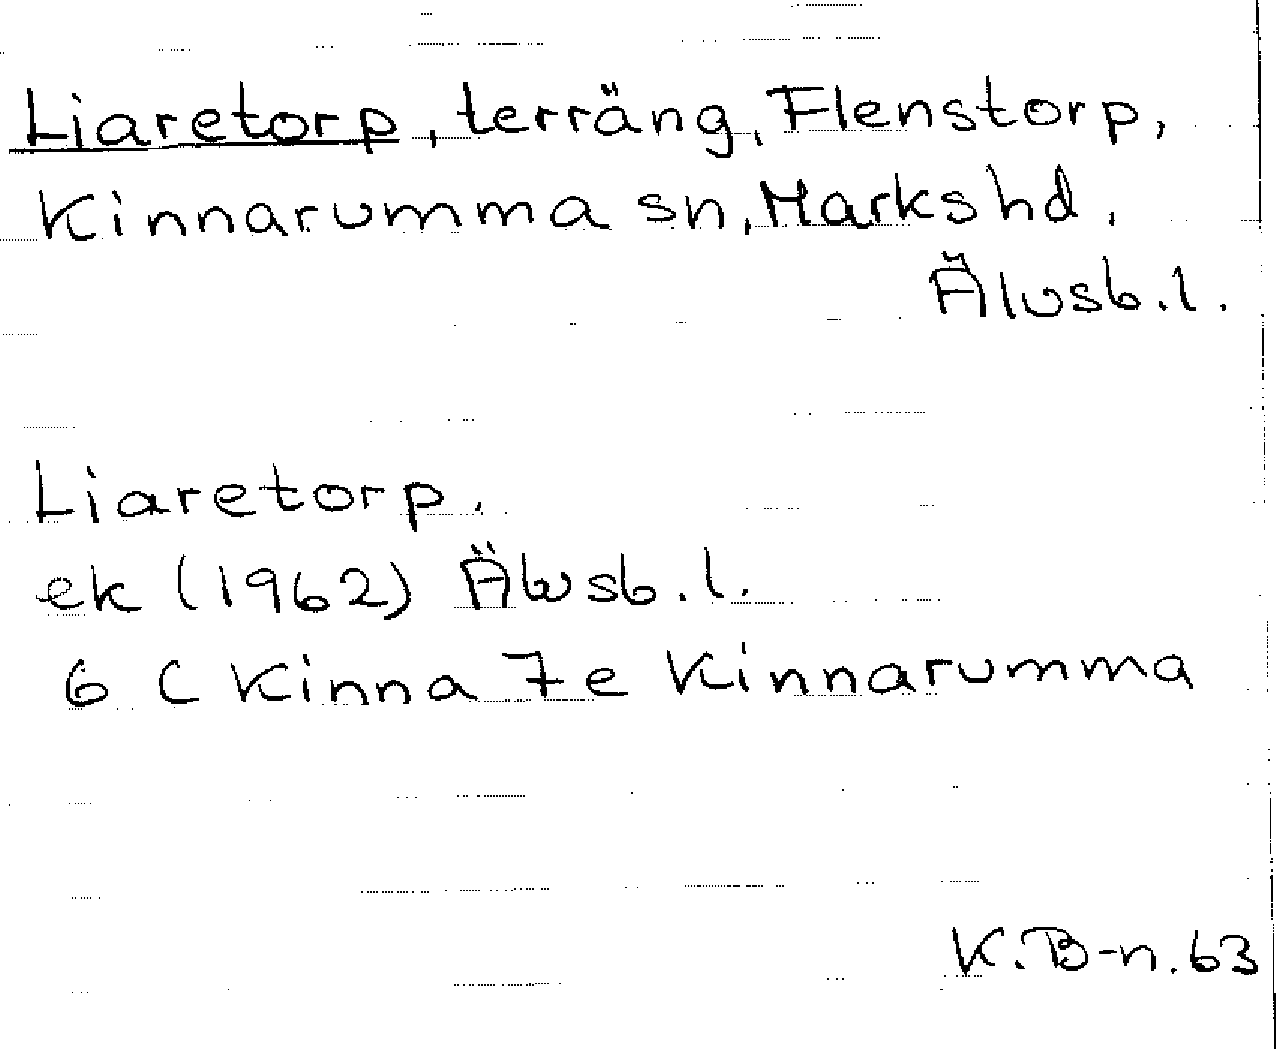 Liaretorp, terräng, Flenstorp,
Kinnarumma sn, Marks hd.
Älvsb.l.
Liaretorp.
ek (1962) Älvsb.l.
6 C Kinna 7e Kinnarumma
K.B-n. 63